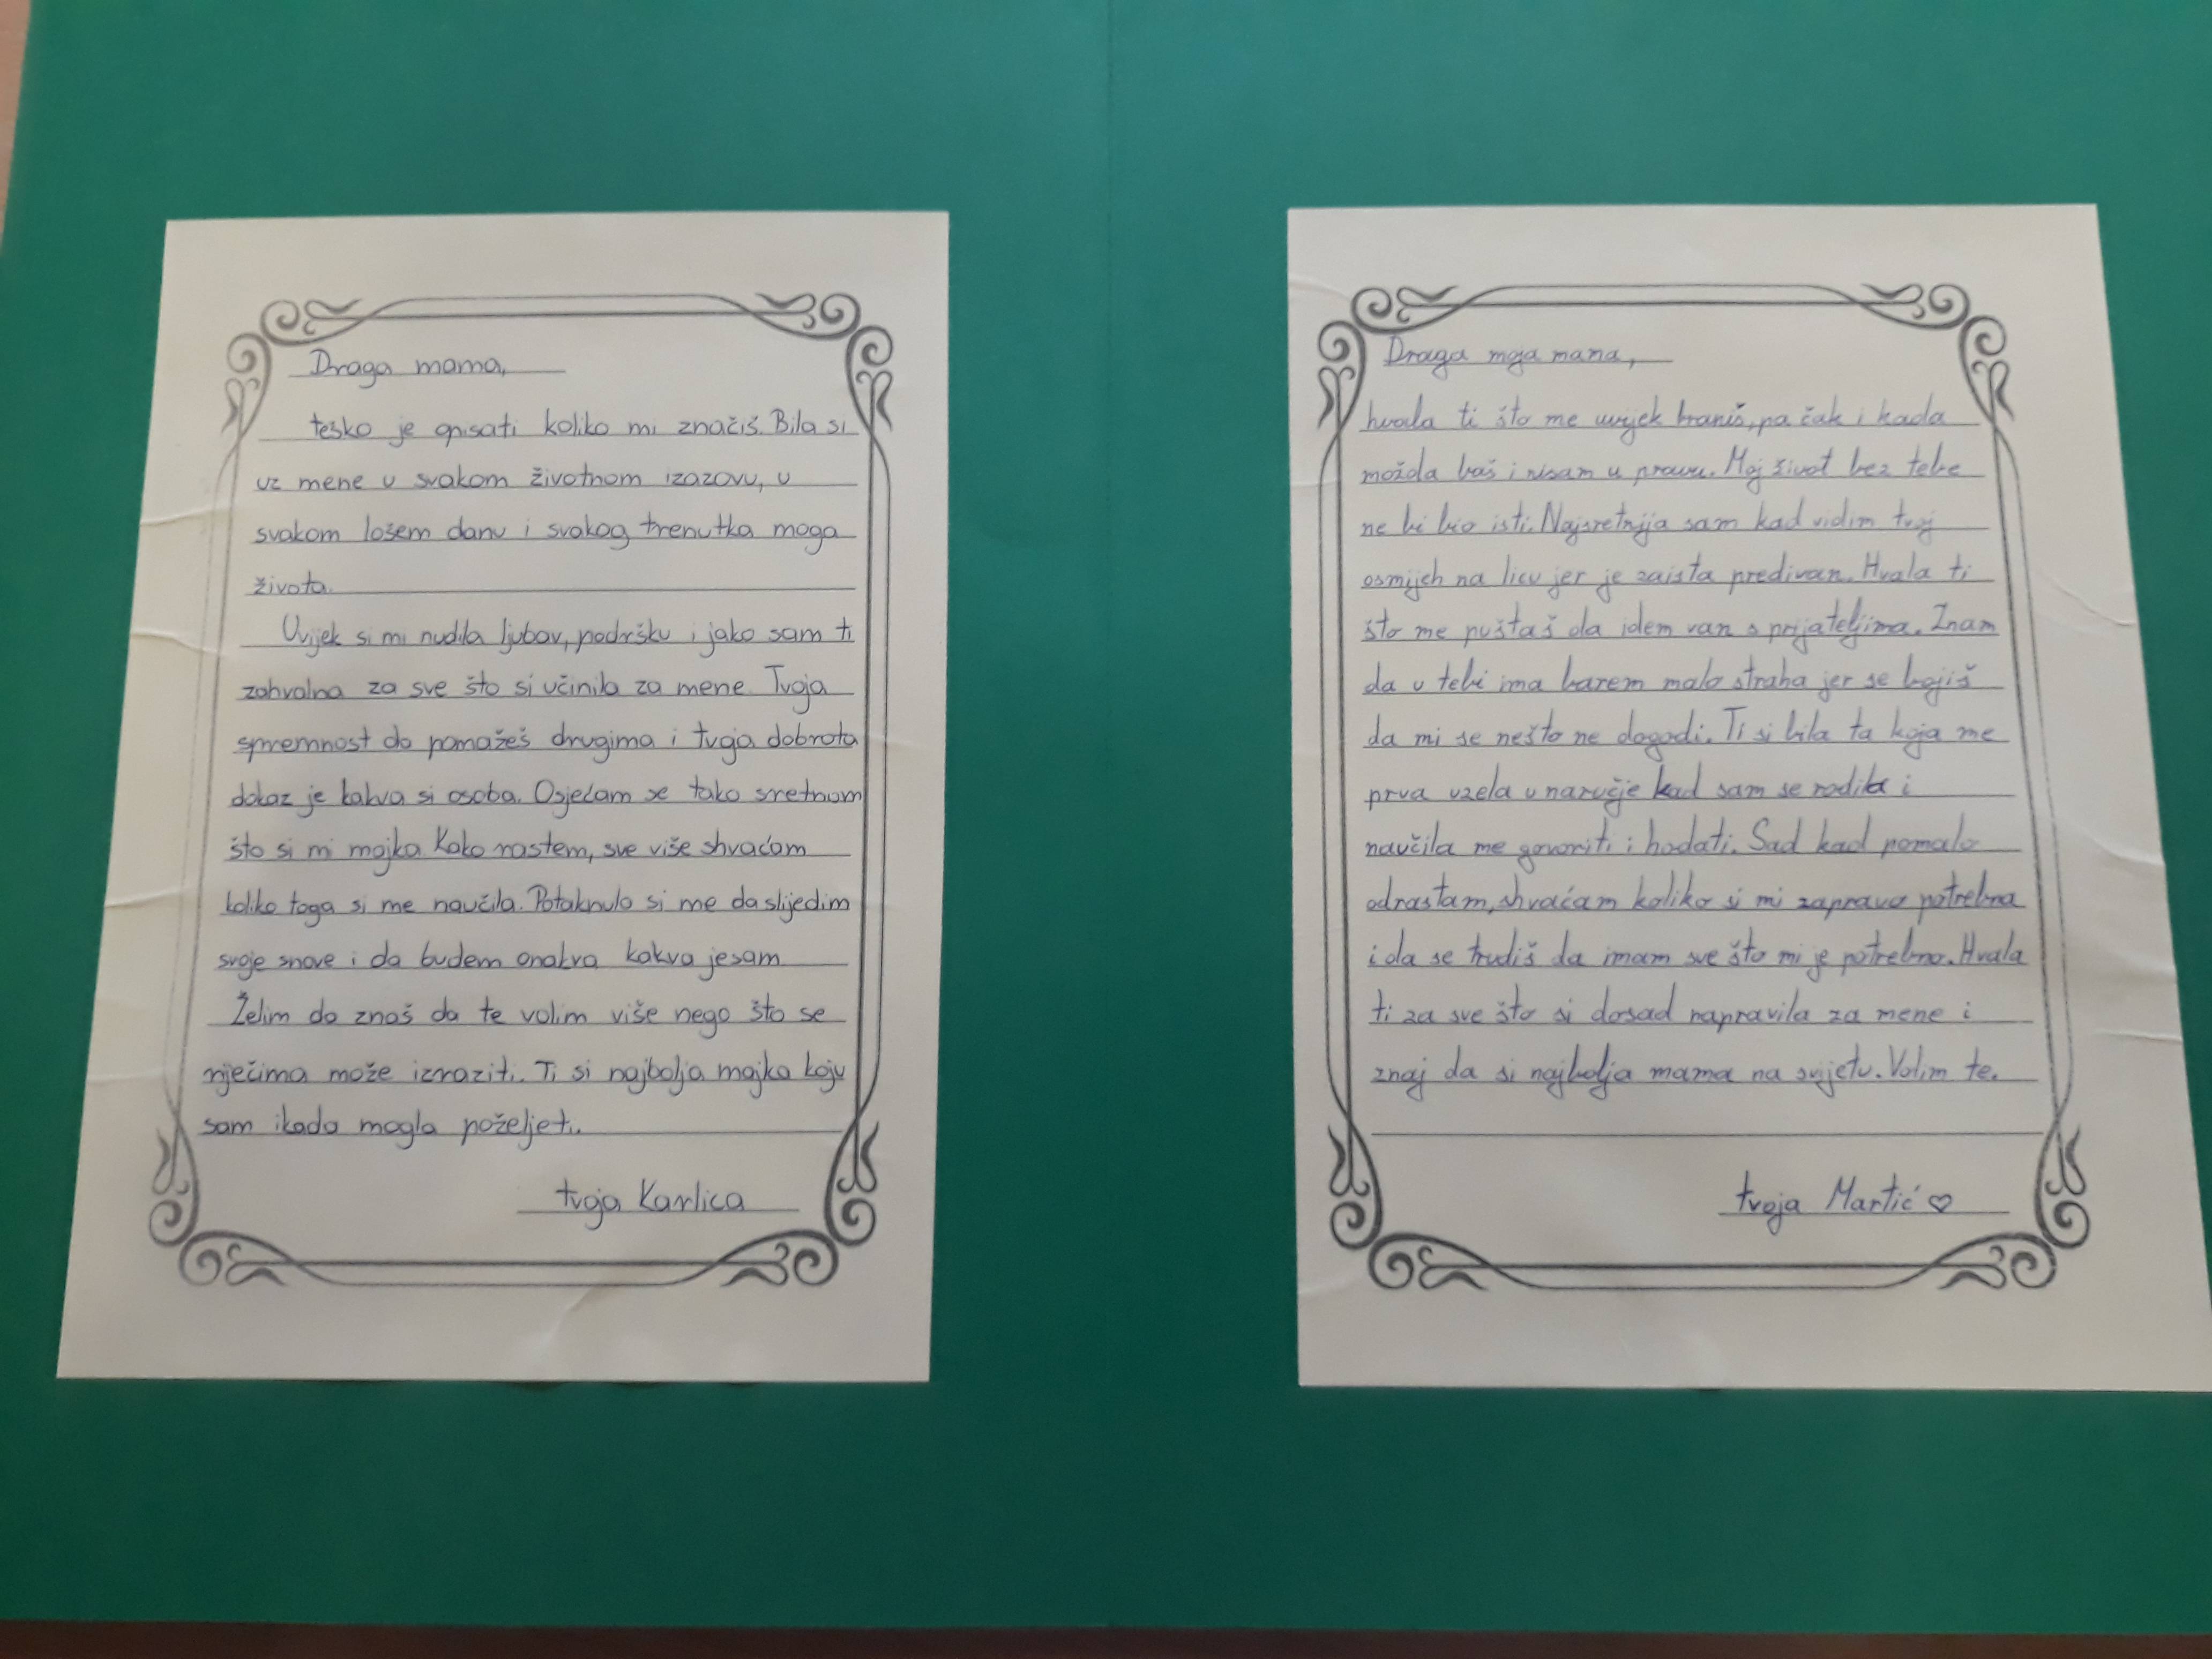 Draga mama,
teško je opisati koliko mi značiš. Bila si
uz mene u svakom životnom izazovu, u
svakom lošem danu i svakog trenutka moga
života.
Uvijek si mi nudila ljubav, podršku i jako sam ti
zahvalna za sve što si učinila za mene. Tvoja
spremnost da pomažeš drugima i tvoja dobrota
dokaz je kakva si osoba. Osjećam se tako sretnom
što si mi majka. Kako rastem, sve više shvaćam
koliko toga si me naučila. Potaknula si me da slijedim
svoje snove i da budem onakva kakva jesam.
Želim da znaš da te volim više nego što se
riječima može izraziti. Ti si najbolja majka koju
sam ikada mogla poželjeti.
tvoja Karlica
Draga moja mama,
hvala ti što me uvijek braniš, pa čak i kada
možda baš i nisam u pravu. Moj život bez tebe
ne bi bio isti. Najsretnija sam kad vidim tvoj
osmijeh na licu jer je zaista predivan. Hvala ti
što me puštaš da idem van s prijateljima. Znam
da u tebi ima barem malo straha jer se bojiš
da mi se nešto ne dogodi. Ti si bila ta koja me
prva uzela u naručje kad sam se rodila i
naučila me govoriti i hodati. Sad kad pomalo
odrastam, shvaćam koliko si mi zapravo potrebna
i da se trudiš da imam sve što mi je potrebno. Hvala
ti za sve što si dosad napravila za mene i
znaj da si najbolja mama na svijetu. Volim te.
tvoja Martić ♡